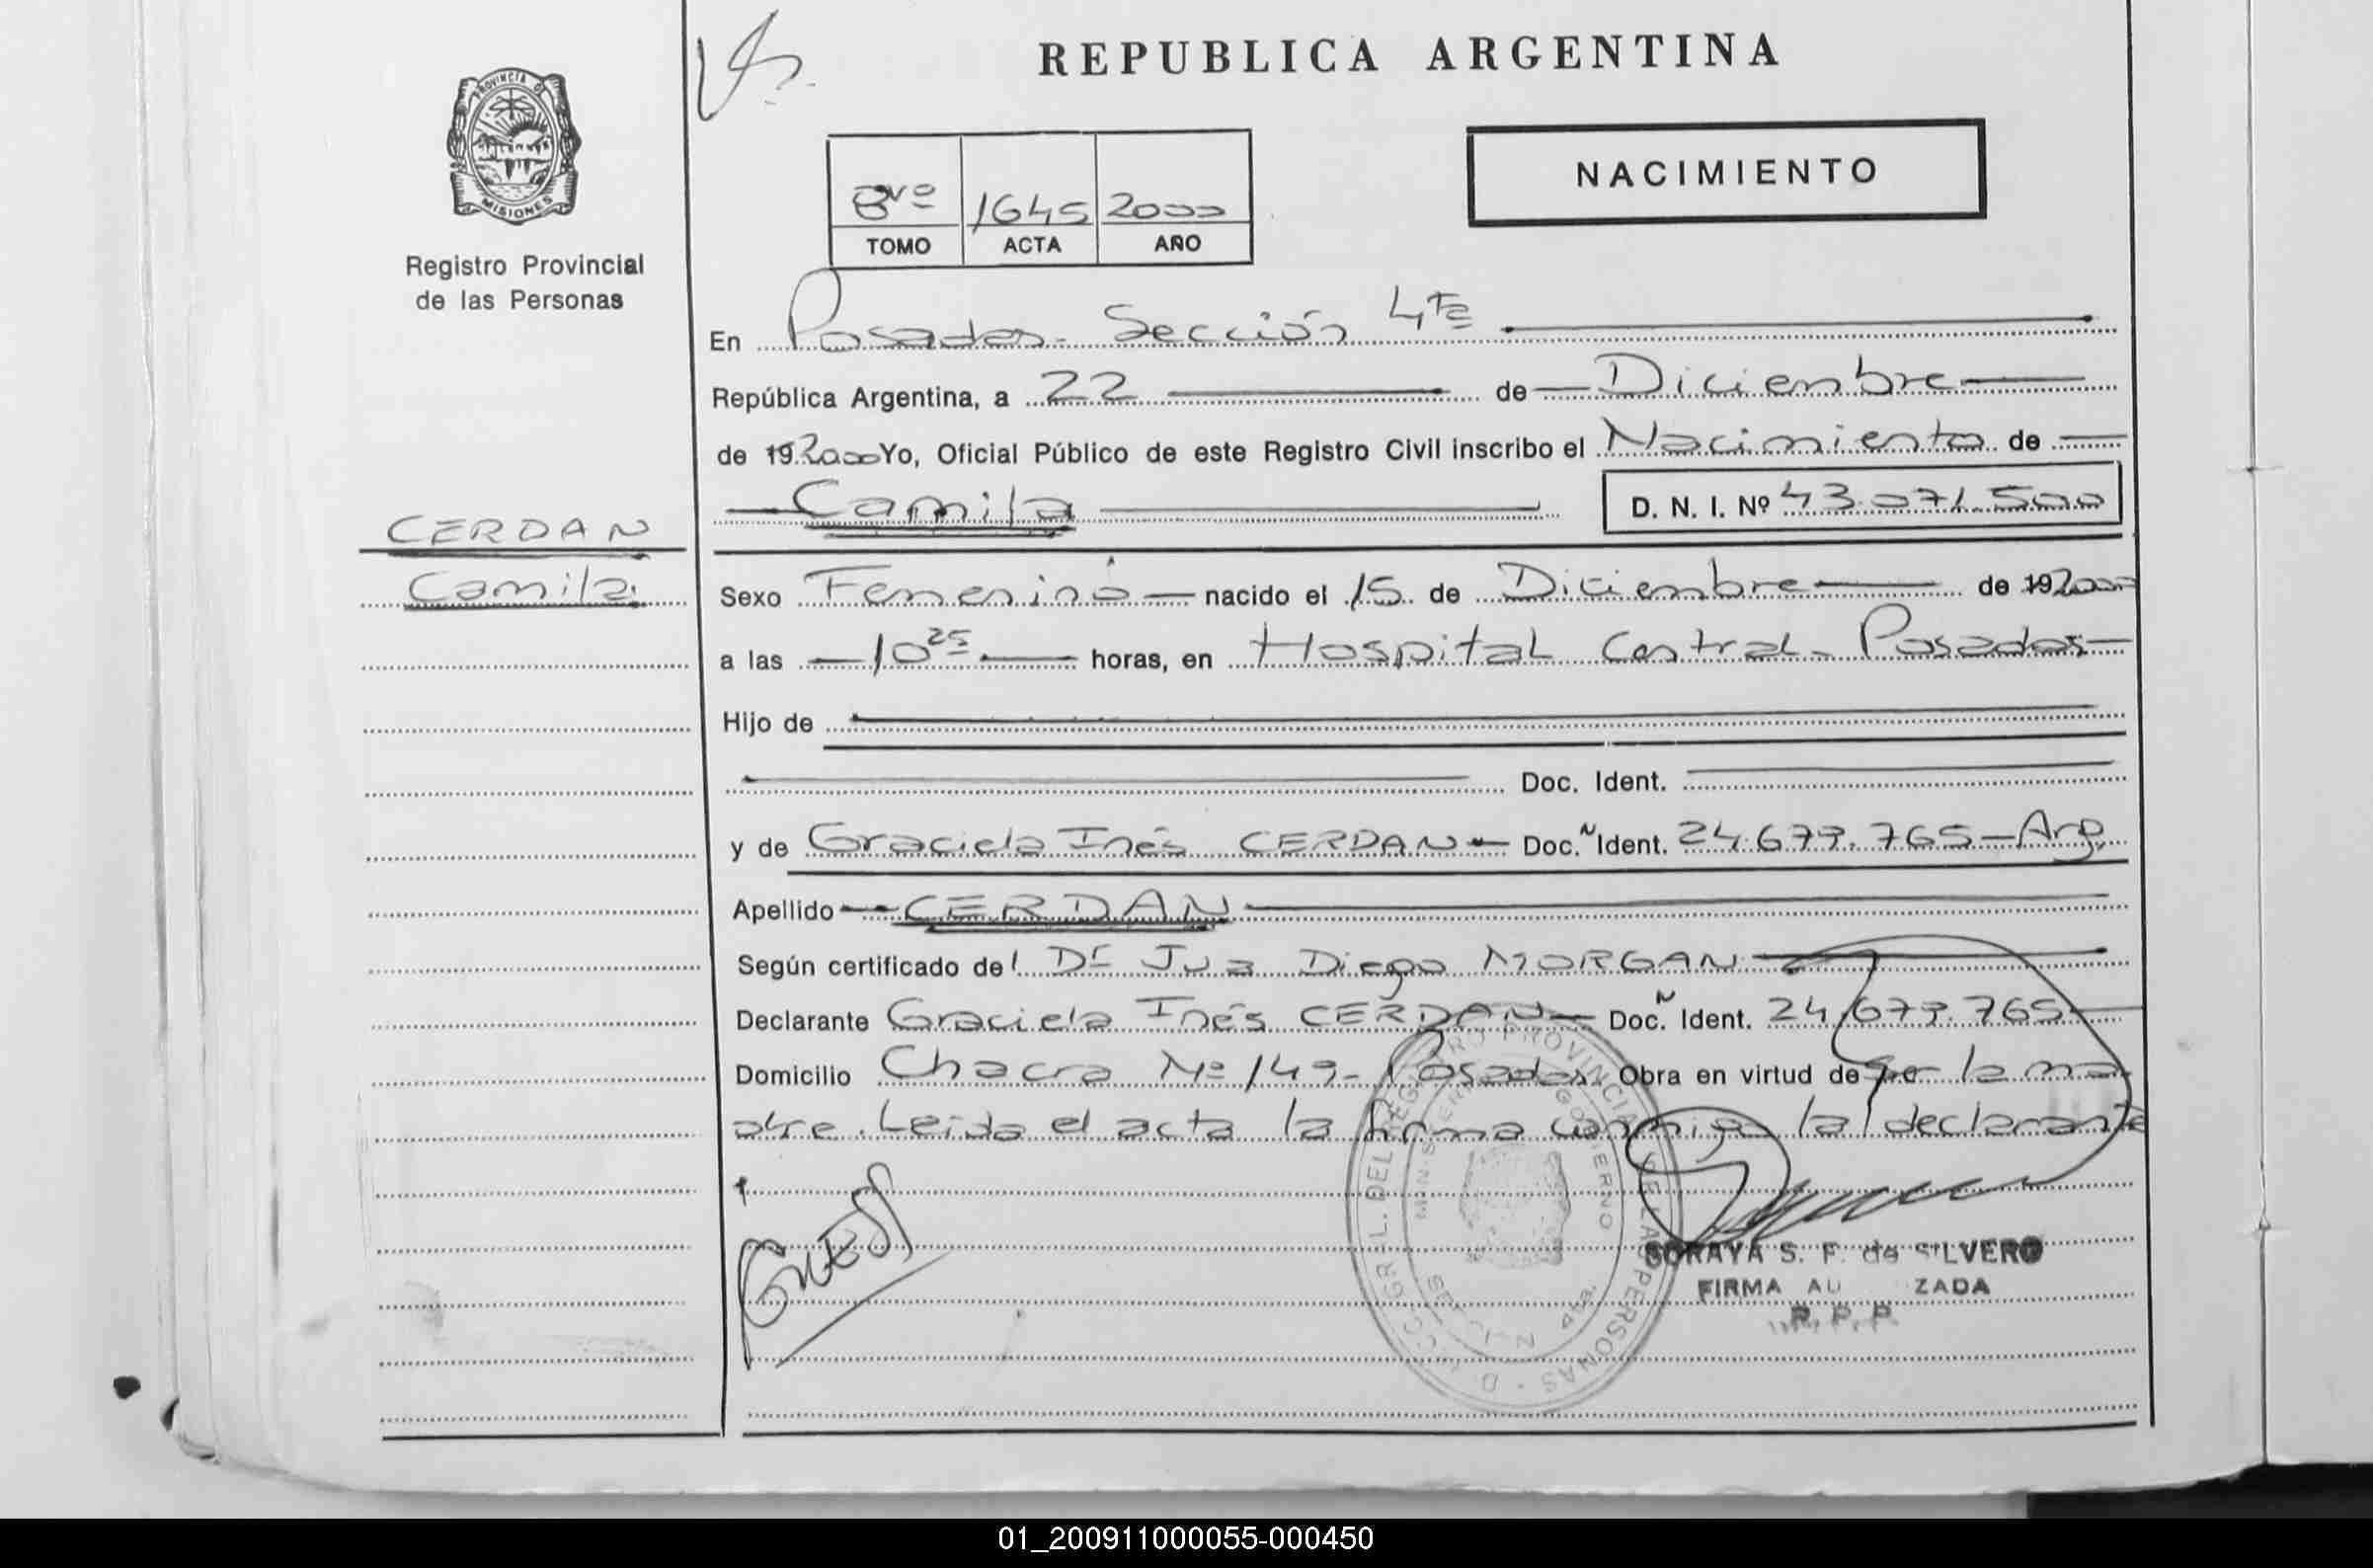 REPUBLICA ARGENTINA
PROVINCIA DE
MISIONES
Registro Provincial
de las Personas
8vo 1645 2000
TOMO ACTA AÑO
NACIMIENTO
En Posadas - Sección 4ta
República Argentina, a 22 de Diciembre
de 19 2000 Yo, Oficial Público de este Registro Civil inscribo el Nacimiento de
Camila D. N. I. Nº 43.071.500
CERDAN
Camila
Sexo Femenino nacido el 15 de Diciembre de 19 2000
a las 10 25 horas, en Hospital Central - Posadas
Hijo de
Doc. Ident.
y de Graciela Inés CERDAN Doc. Ident. 24.679.765 - Arg.
Apellido CERDAN
Según certificado del Dr Jua Diego MORGAN
Declarante Graciela Inés CERDAN Doc. Ident. 24.679.765
Domicilio Chacra Nº 149 - Posadas. Obra en virtud de ser la ma
dre. Leida el acta la firma conmigo la declarante
SORAYA S. F. de SILVERO
FIRMA AU ZADA
R. P. P.
01_200911000055-000450